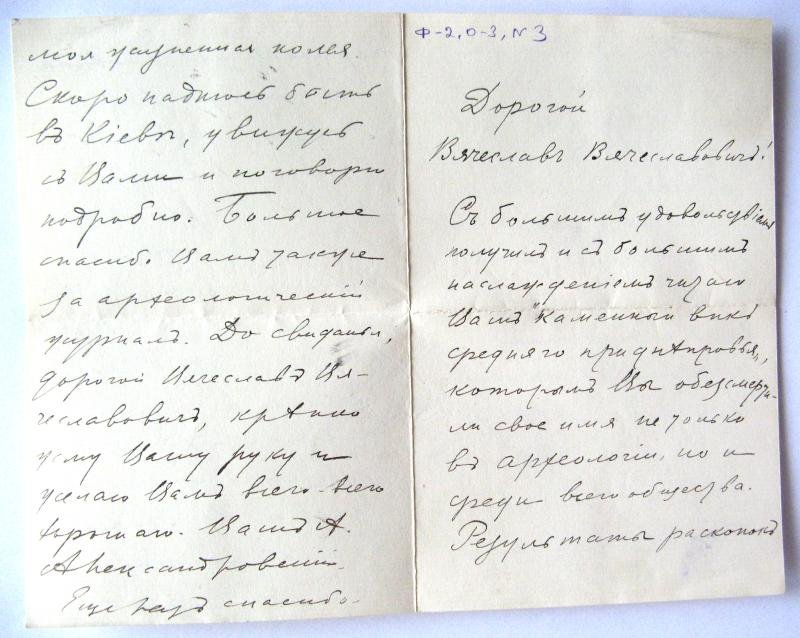 Ф-2, О-3, N 3
Дорогой
Вячеславъ Вячеславовичъ!
Съ большимъ удовольствіемъ
получилъ и съ большимъ
наслажденіемъ читаю
Вашъ "Каменный вѣкъ
средняго приднѣпровья",
которымъ Вы обезсмерти-
ли свое имя не только
въ археологіи, но и
среди всего общества.
Результаты раскопокъ
моя жизненная колея.
Скоро надѣюсь быть
въ Кіевѣ, увижусь
съ Вами и поговорю
подробно. Большое
спасибо Вамъ также
за археологическій
журналъ. До свиданья,
дорогой Вячеславъ Вя-
чеславовичъ, крѣпко
жму Вашу руку и
желаю Вамъ всего-всего
хорошаго. Вашъ А.
Александровскій.
Еще разъ спасибо.